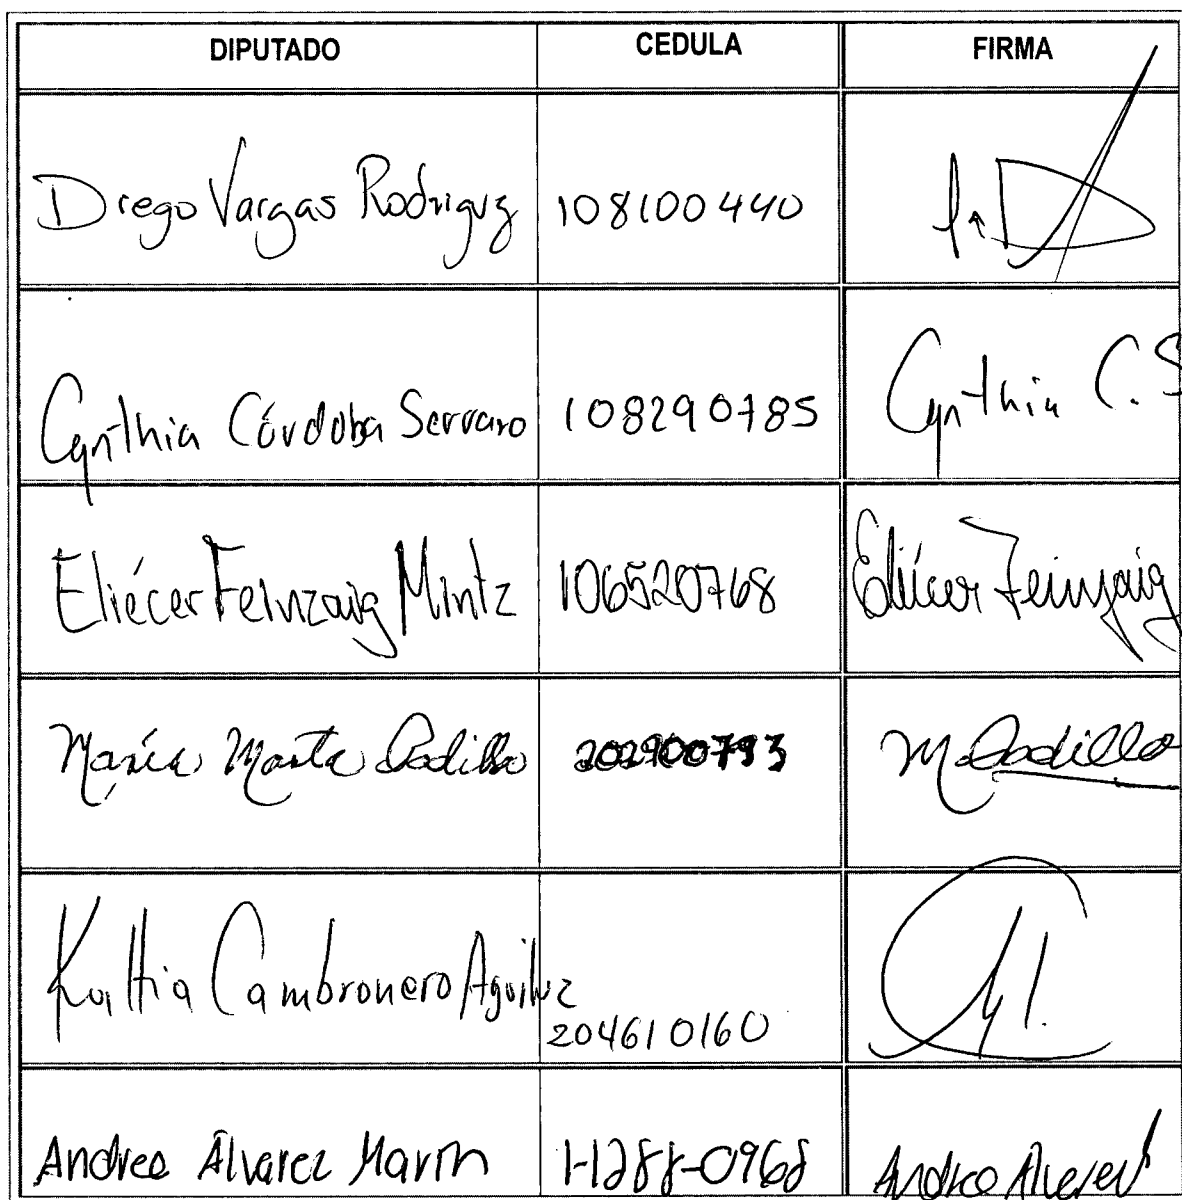 DIPUTADO CEDULA FIRMA
Diego Vargas Rodriguz 108100440
Cynthia Córdoba Serrano 108290785 Cynthia C. S
Eliécer Feinzaig Mintz 106520768 Eliécer Feinzaig
María Marta Padilla 202900793 M Padilla
Kattia Cambronero Aguiluz 204610160
Andrea Álvarez Marín 1-1288-0968 Andrea Alvarez